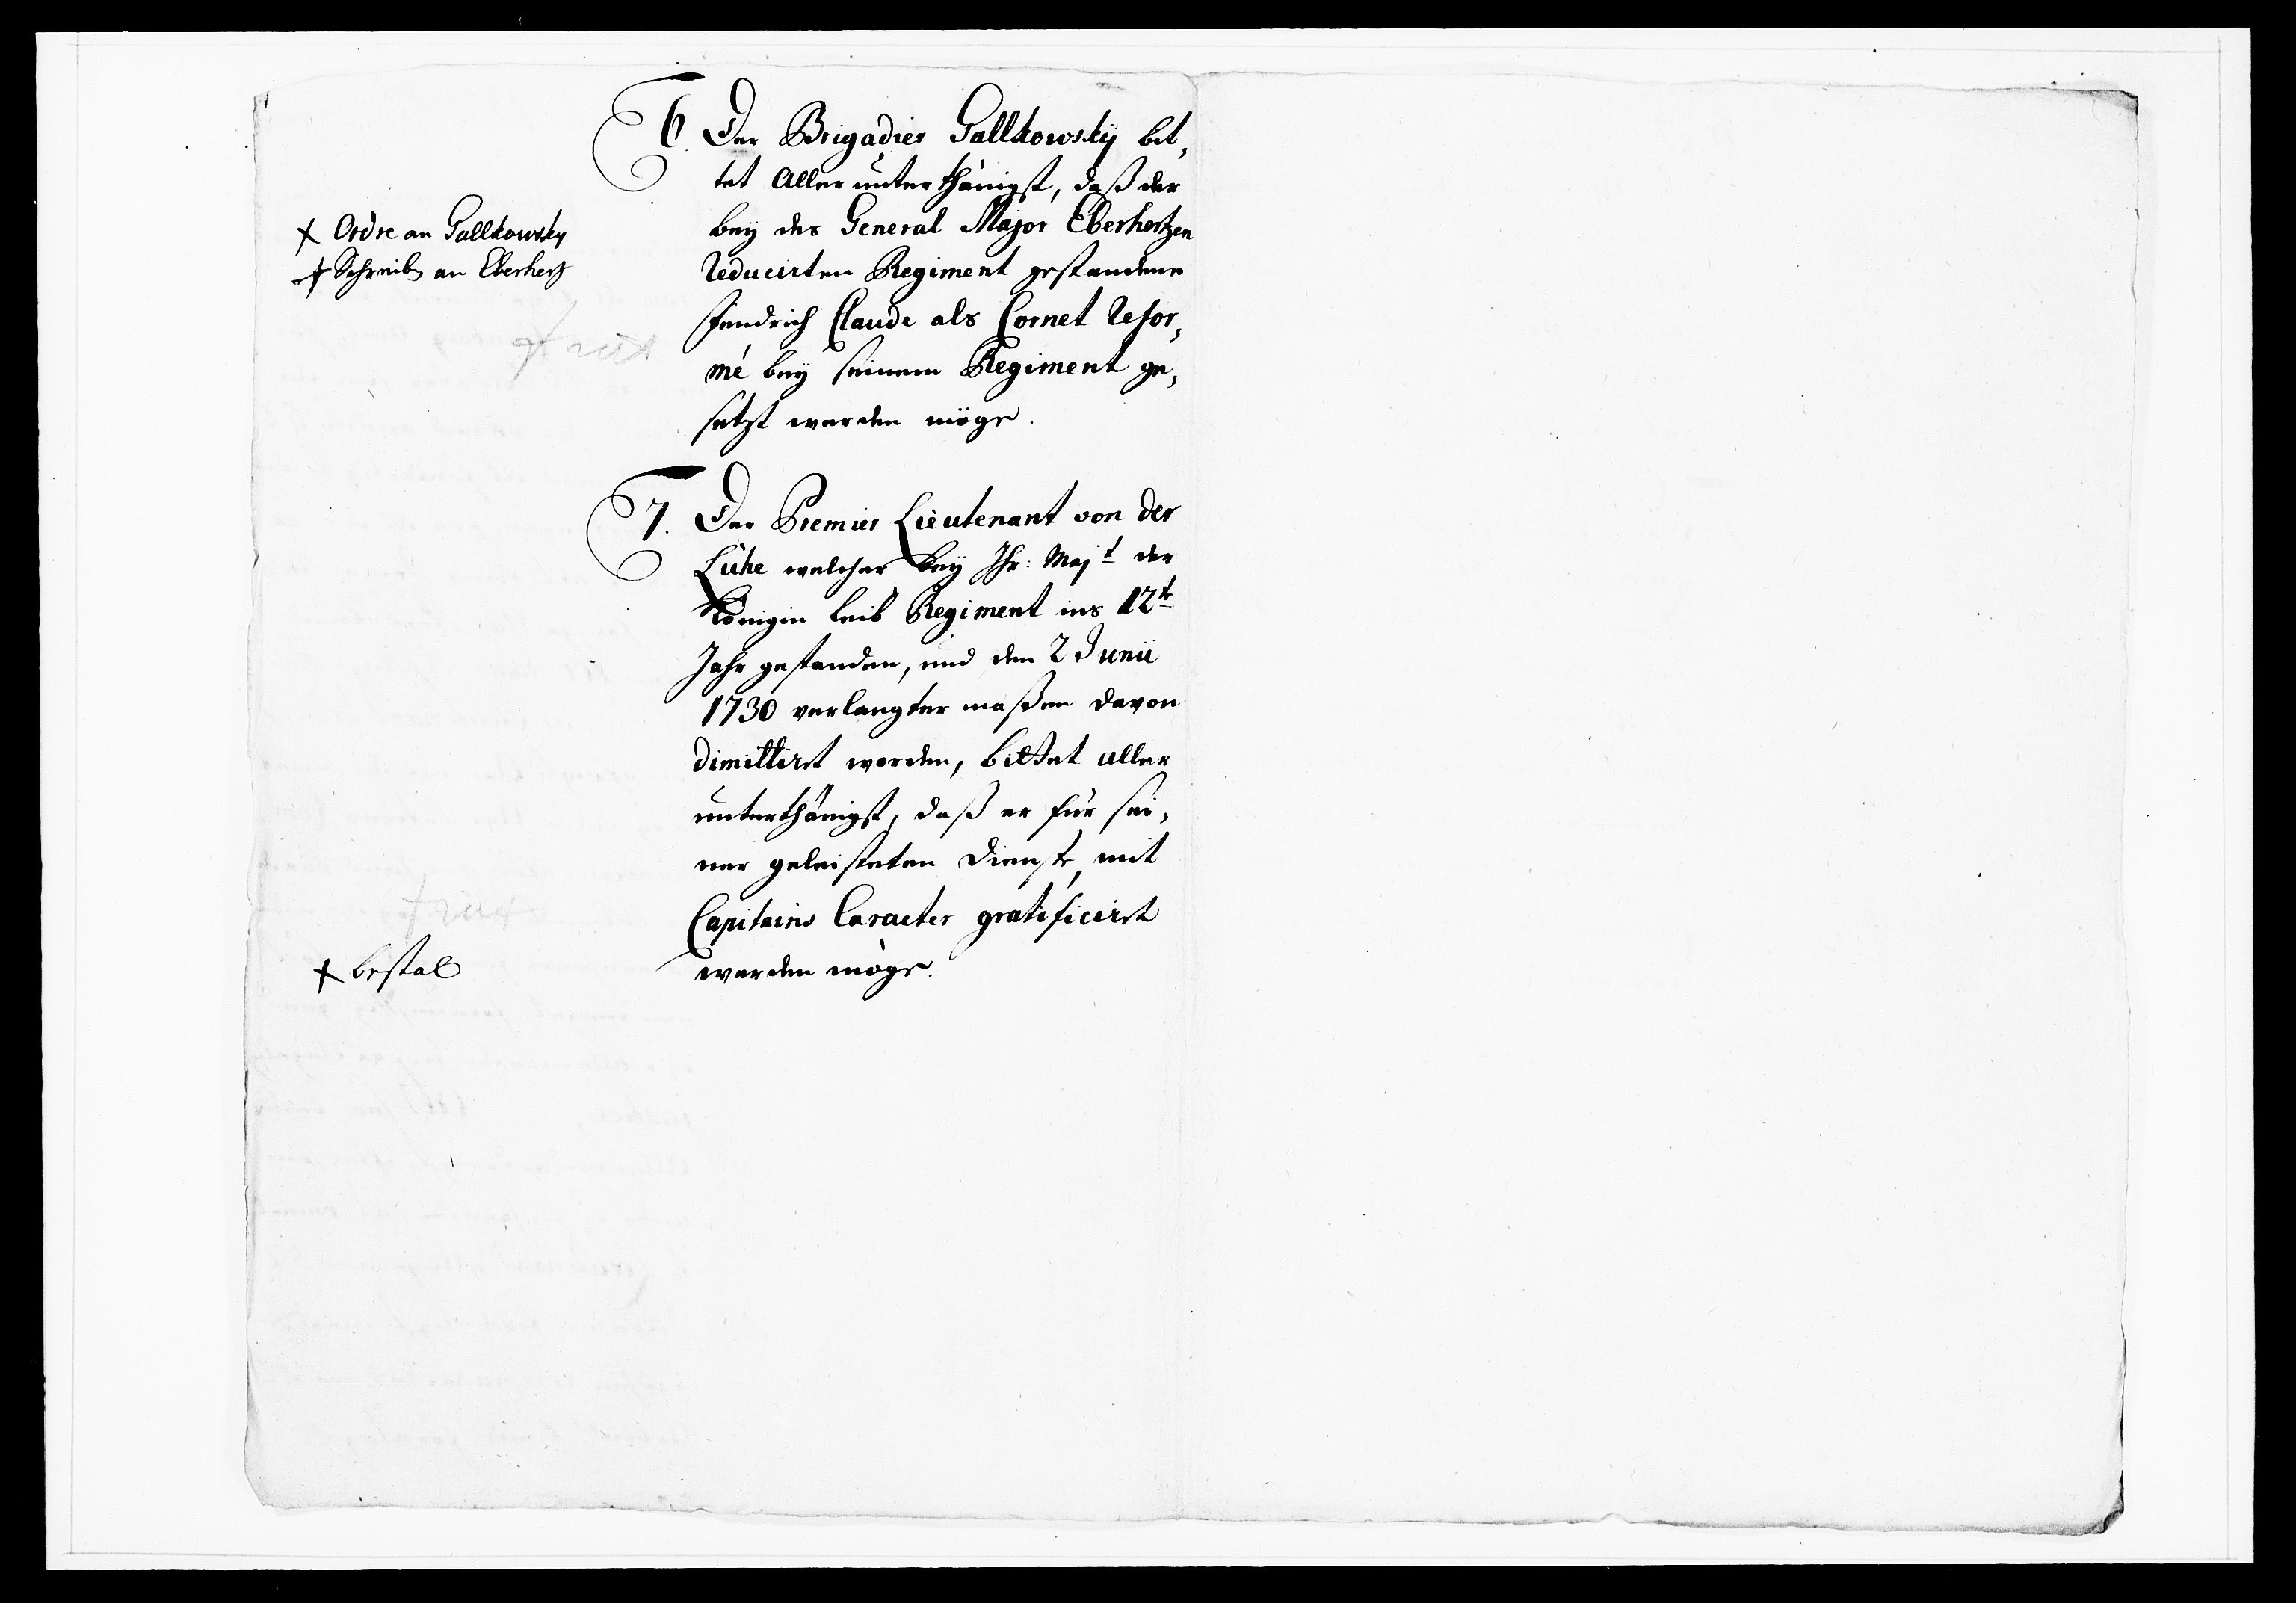 6. Der Brigadier Gallkowskÿ bit,
tet allerunterthänigst, daß der
beÿ des General Major Eberhertzen
reducirten Regiment gestandene
Fendrich Claude als Cornet Refor,
mé beÿ seinem Regiment ge,
setzt werden möge.
x Ordre an Gallkowsky
x Schreib an Eberhertz
7. Der Premier Lieutenant von der
Lühe welcher beÿ Ihr: Majt der
Königin leib Regiment ins 12te
Jahr gestanden, und den 2 Junii
1730 verlangter maßen davon
dimittirt worden, bittet aller
unterthänigst, daß er für sei,
ner geleisteten Dienste, mit
Capitains Caracter gratificirt
werden möge.
x bestal